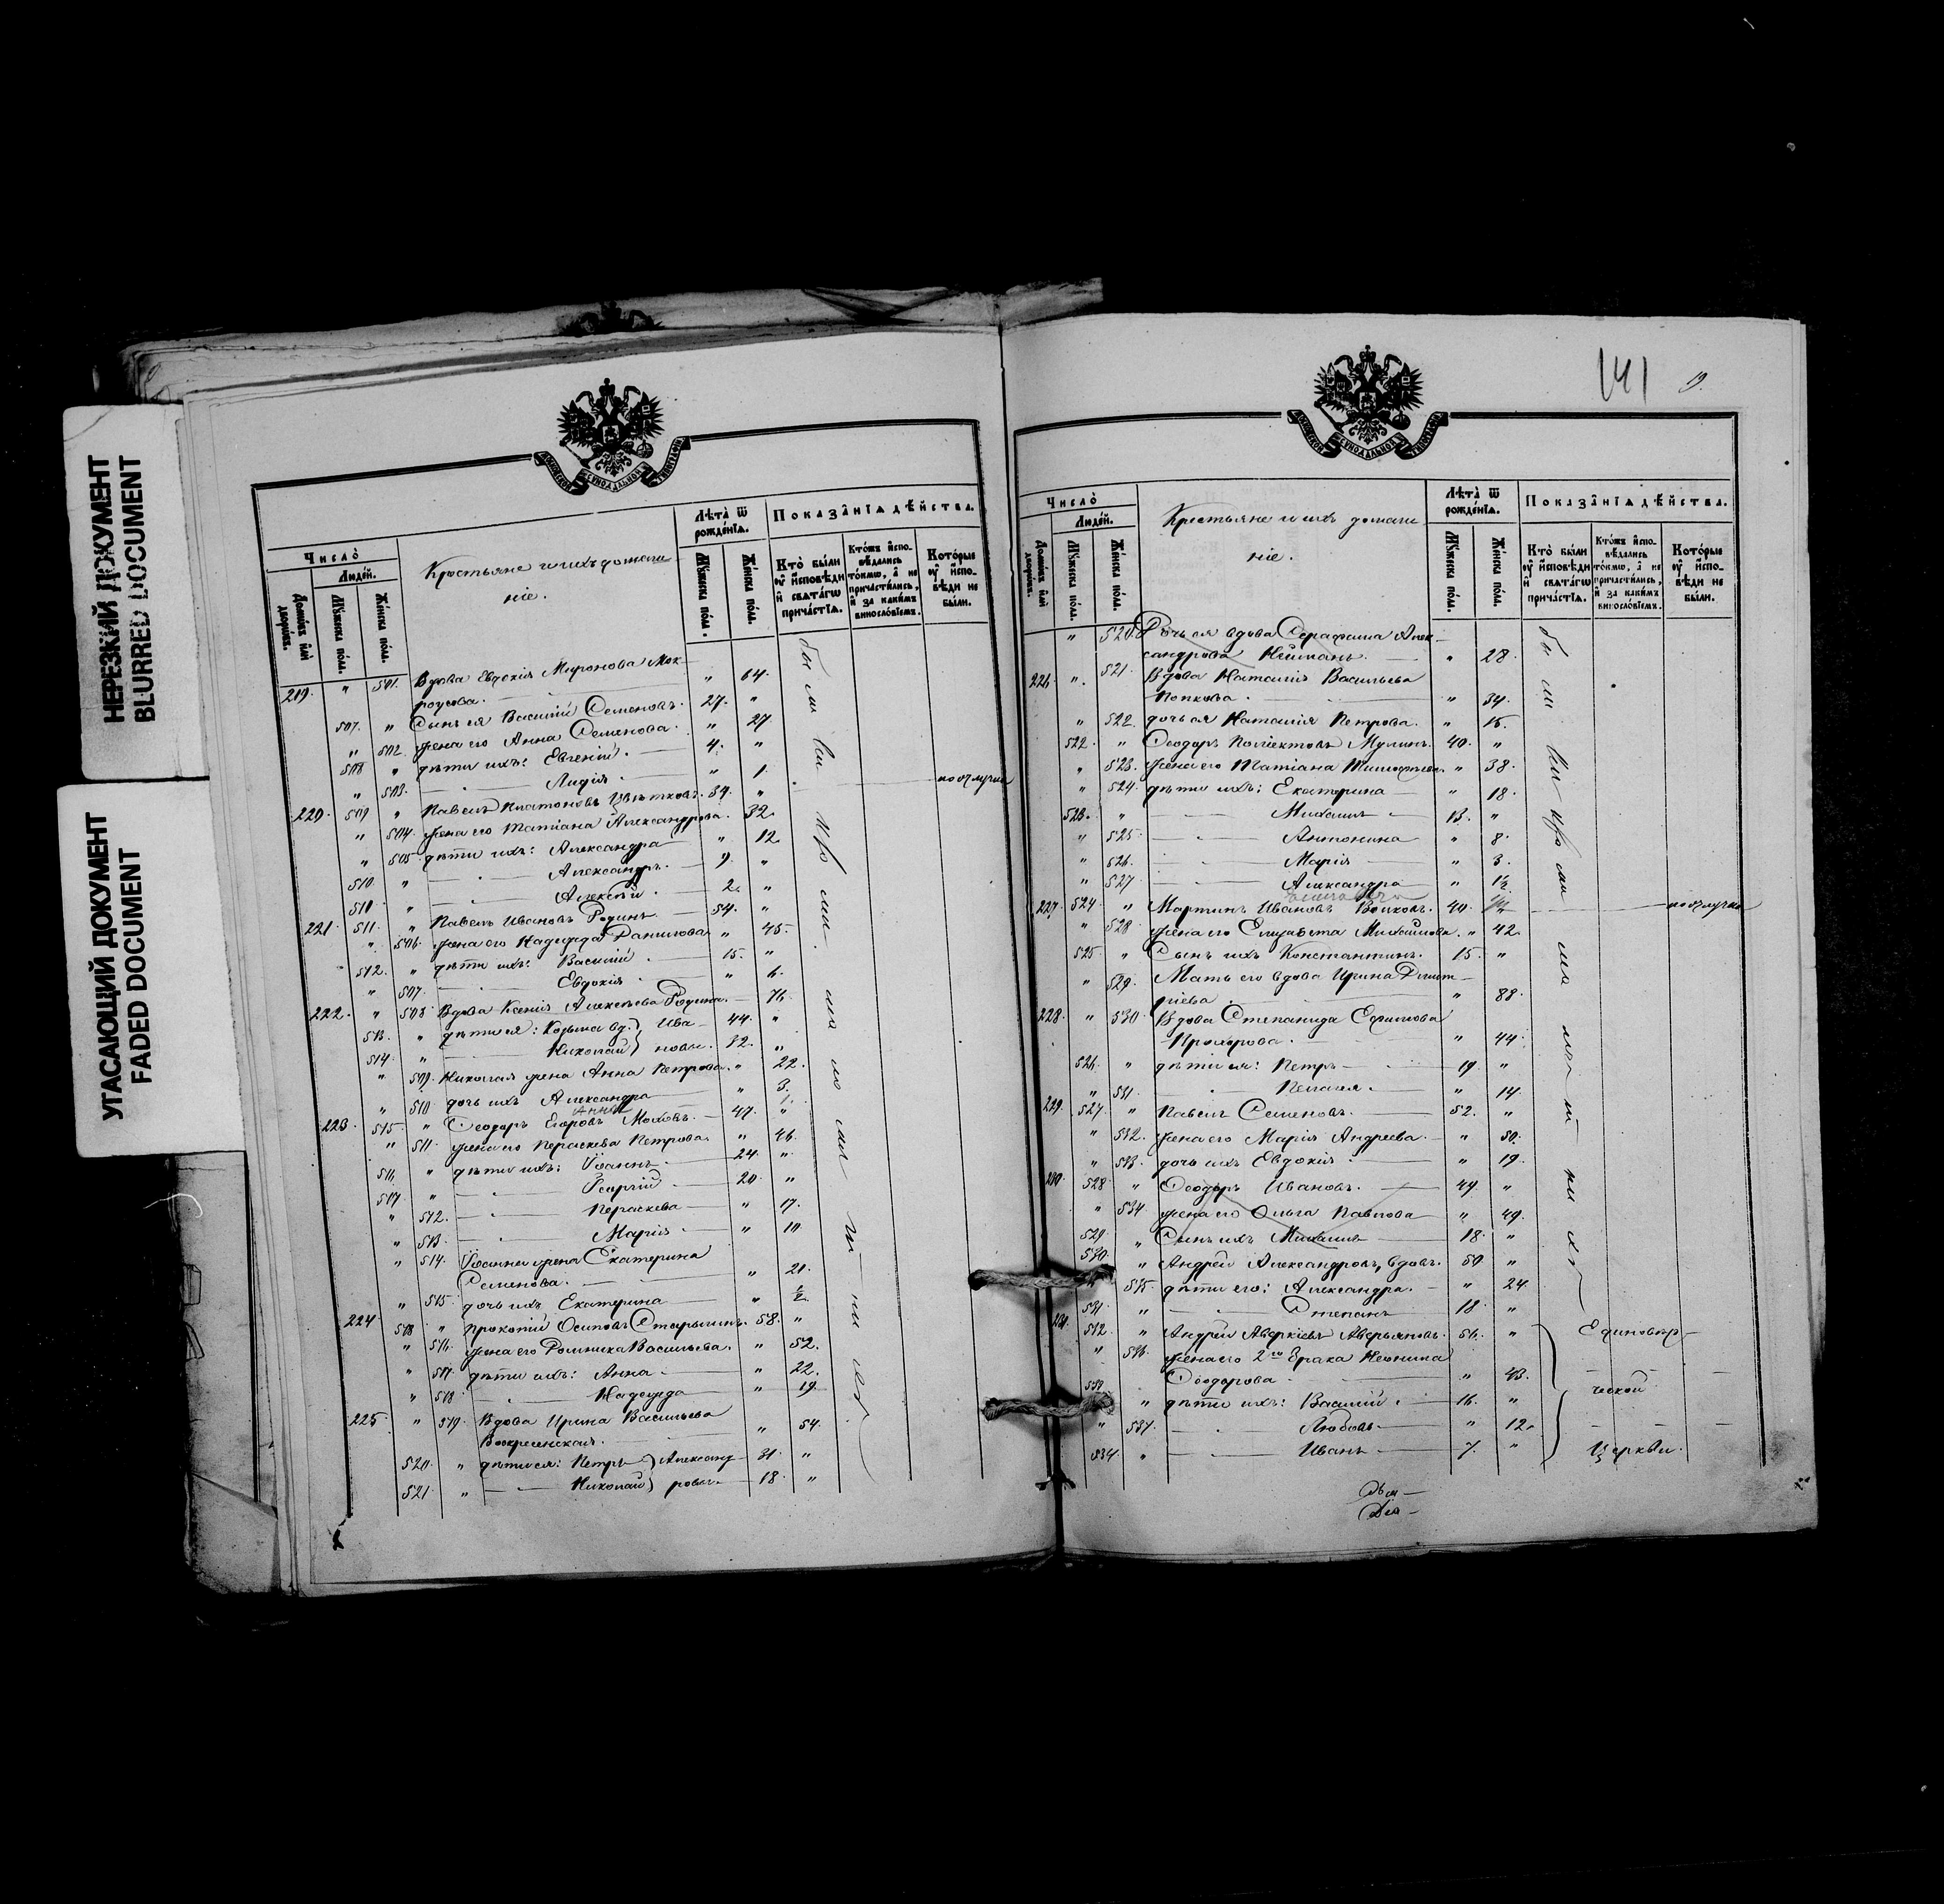 НЕРЕЗКИЙ ДОКУМЕНТ
BLURRED DOCUMENT
УГАСАЮЩИЙ ДОКУМЕНТ
FADED DOCUMENT
Число̀
Людéй.
Домóвъ илѝ дворóвъ.
Мꙋ́жеска пóл.
Жéнска пóл.
Крестьяне и ихъ домаш-
ніе.
Лѣтà ѿ рождéнїѧ.
Мꙋ́жеска пóл.
Жéнска пóл.
Показáнїѧ дѣ́йства.
Ктò бы́ли ᲂу҆ и҆сповѣди и҆ свѧтáгѡ причáстїѧ.
Ктóжъ и҆спо-вѣдались тóкмѡ, а҆ не причасти́лись, и҆ за каки́мъ винослóвїемъ.
Котóрые ᲂу҆ и҆спо-вѣди не бы́ли.
219. " 501. Вдова Евдокія Миронова Мок-
роусова. " 64.
507. " Сынъ ея Василій Семеновъ. 27. "
" 502. жена его Анна Семенова. " 27
508 " дѣти ихъ: Евгеній. 4. "
" 503. Лидія " 1.
220. 509 " Павелъ Платоновъ Цвѣтковъ. 34. " по отлучкѣ
" 504. жена его Татіана Александрова. 32.
" 505 дѣти ихъ: Александра " 12
510 " Александръ 9. "
510 " Алексѣй 2. "
221 511. " Павелъ Ивановъ Родинъ 54. "
" 506. жена его Надежда Данилова " 45.
512. " дѣти ихъ: Василій 15. "
" 507. Евдокія " 6.
222. " 508 Вдова Ксенія Алексѣева Родина. 76.
513. " дѣти ея: Козьма вд. } Ива- 44. "
514. " Николай } новы. 32. "
" 509. Николая жена Анна Петрова. " 22.
" 510 дочь ихъ Александра " 3.
Анна
223. 515 " Ѳеодоръ Егоровъ Моховъ. 47. "
" 511. жена его Параскева Петрова. " 46.
516 " дѣти ихъ: Іоаннъ 24. "
517. " Георгій 20 "
" 512. Параскева " 17.
" 513. Марія " 10
" 514. Іоанна жена Екатерина
Семенова. " 21.
" 515 дочь ихъ Екатерина " ½
224 518 " Прокопій Осиповъ Старыгинъ. 58. "
" 516. жена его Домника Васильева. " 52.
" 517. дѣти ихъ: Анна " 22.
" 518 Надежда " 19.
225. " 519. Вдова Ирина Васильева
Воскресенская. " 54.
520. " дѣти ея: Петръ } Александ- 31. "
521 " Николай } ровы 18. "
были при исповѣди
141
Число̀
Людéй.
Домóвъ илѝ дворóвъ.
Мꙋ́жеска пóл.
Жéнска пóл.
Крестьяне и ихъ домаш-
ніе.
Лѣтà ѿ рождéнїѧ.
Мꙋ́жеска пóл.
Жéнска пóл.
Показáнїѧ дѣ́йства.
Ктò бы́ли ᲂу҆ и҆сповѣди и҆ свѧтáгѡ причáстїѧ.
Ктóжъ и҆спо-вѣдались тóкмѡ, а҆ не причасти́лись, и҆ за каки́мъ винослóвїемъ.
Котóрые ᲂу҆ и҆спо-вѣди не бы́ли.
" 520. Дочь ея вдова Серафима Алек-
сандрова Нейманъ. " 28.
226. " 521. Вдова Наталія Васильева
Попкова. " 34.
" 522. дочь ея Наталія Петрова. " 15.
522. " Ѳеодоръ Поліектовъ Мулинъ. 40. "
" 523. жена его Татіана Тимофѣева. " 38.
" 524. дѣти ихъ: Екатерина " 18.
523. " Михаилъ 13. "
" 525 Антонина " 8.
" 526. Марія " 3.
" 527 Александра " 1½
227. 524. " Мартинъ Ивановъ Волковъ. 40. " по отлучкѣ
" 528 жена его Елизавета Михайлова. " 42.
525. " Сынъ ихъ Константинъ. 15. "
" 529. Мать его вдова Ирина Димит-
ріева " 88.
228. " 530. Вдова Степанида Ефимова
Прохорова. " 44.
526. " дѣти ея: Петръ 19. "
" 531 Пелагея. " 14.
229. 527. " Павелъ Семеновъ. 52. "
" 532. жена его Марія Андреева. " 50.
" 533. дочь ихъ Евдокія " 19.
230. 528. " Ѳеодоръ Ивановъ. 49. "
" 534 жена его Ольга Павлова " 49.
529. " Сынъ ихъ Михаилъ 18. "
530. " Андрей Александровъ, вдовъ. 50. "
535. дѣти его: Александра. " 24
531. " Степанъ 18. "
231. 532 " Андрей Аверкіевъ Аверьяновъ. 56. " Единовѣр-
" 536. жена его 2го брака Неонила
Ѳеодорова " 43. ческой
533 " дѣти ихъ: Василій 16. "
" 537. Любовь " 12.
534. " Иванъ 7. " Церкви.